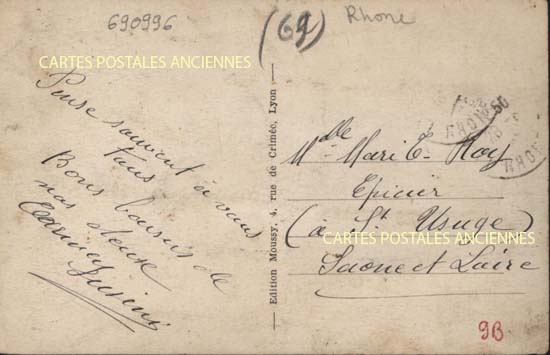 690996
(69)
Rhone
CARTES POSTALES ANCIENNES
Pense souvent à vous
tous
Bons baisers de
nos deux
Edition Moussy, 4, rue de Crimée, Lyon
RHONE
RHONE
Mlle Marie Roy
Epicier
(à St Usuge)
CARTES POSTALES ANCIENNES
Saone et Loire
9B